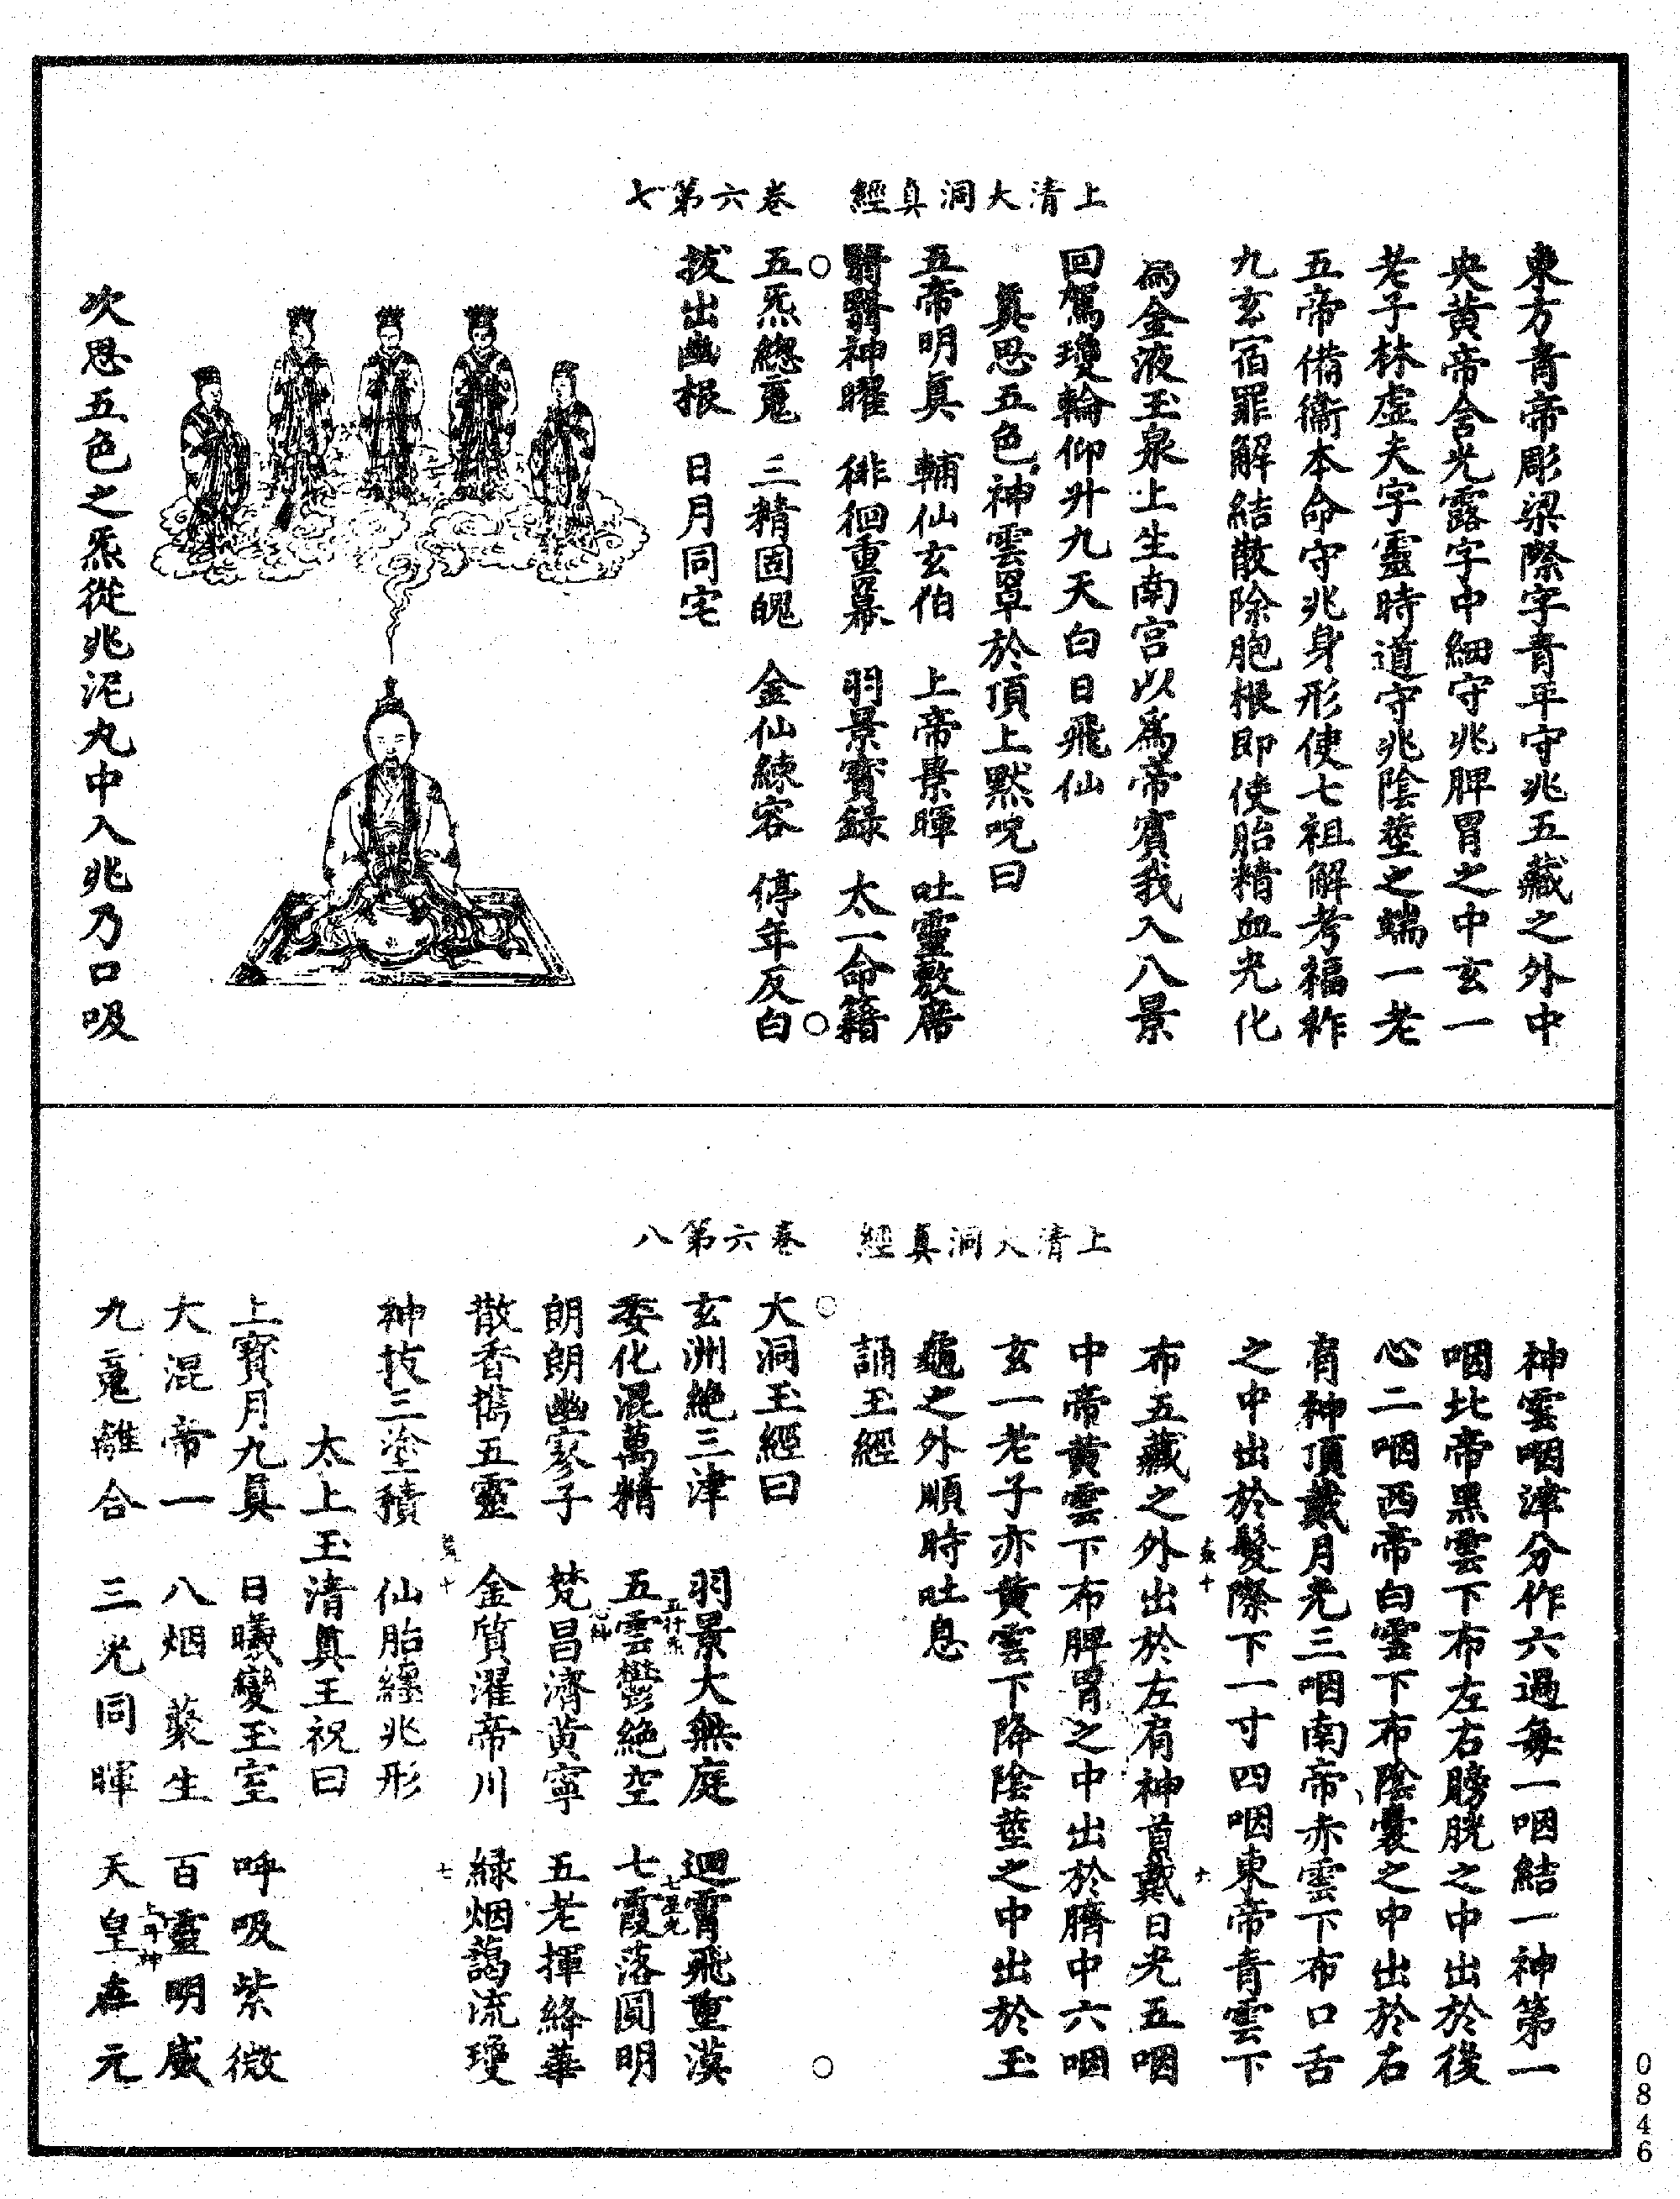 上清大洞真經　卷六第七
東方青帝彫梁際字青平守兆五藏之外中
央黃帝含光露字中細守兆脾胃之中玄一
老子林虛夫字靈時道守兆陰莖之端一老
五帝備衞本命守兆身形使七祖解考福祚
九玄宿罪解結散除胞根即使胎精血光化
為金液玉泉上生南宮以爲帝賓我入八景
回駕瓊輪仰升九天白日飛仙
真思五色神雲罩於頂上默呪曰
五帝明真　輔仙玄伯　上帝景暉　吐靈敷席
翳翳神曜　徘徊重幕　羽景寶籙　太一命籍
五炁總䰟　三精固魄　金仙練容　停年反白
拔出幽根　日月同宅
次思五色之炁從兆泥丸中入兆乃口吸
上清大洞真經　卷六第八
神雲咽津分作六過每一咽結一神第一
咽北帝黑雲下布左右膀胱之中出於後
心二咽西帝白雲下布陰囊之中出於右
肩神頂戴月光三咽南帝赤雲下布口舌
之中出於髮際下一寸四咽東帝青雲下
布五藏之外出於左肩神首戴日光五咽
中帝黃雲下布脾胃之中出於臍中六咽
玄一老子亦黃雲下降陰莖之中出於玉
龜之外順時吐息
誦玉經
大洞玉經曰
玄洲絕三津　羽景大無庭　迴霄飛重漠
委化混萬精　五雲鬱絕空　七霞落圓明
朗朗幽寥子　梵昌濟黃寧　五老揮絳華
散香攜五靈　金質濯帝川　綠烟藹流瓊
神技三塗積　仙胎纏兆形
太上玉清真王祝曰
上寶月九真　日曦變玉室　呼吸紫微
大混帝一　八烟蘂生　百靈明威
九䰟離合　三光同暉　天皇在元
0846